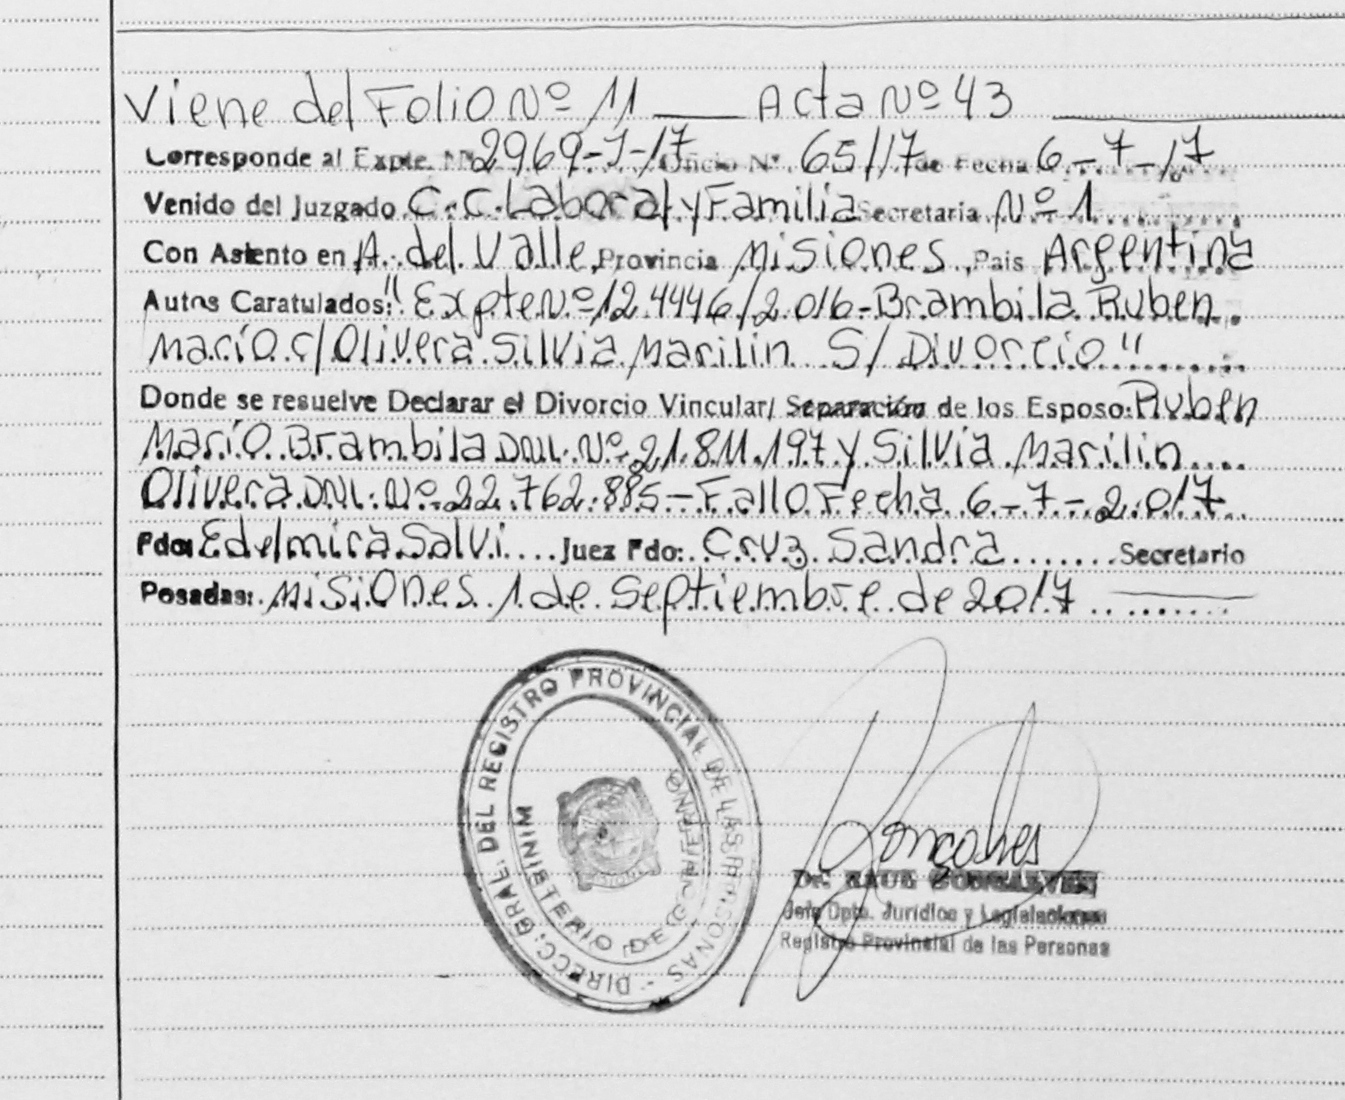 Viene del Folio Nº 11 ___ Acta Nº 43 ___
Corresponde al Expte. Nº 2969-J-17 Oficio Nº 65/17 de Fecha 6-7-17
Venido del Juzgado C.C. Laboral y Familia Secretaria Nº 1
Con Asiento en A. del Valle, Provincia Misiones, Pais Argentina
Autos Caratulados: "Expte Nº 12.4446/2.016- Brambila Ruben
Mario c/ Olivera Silvia Marilin S/ Divorcio"
Donde se resuelve Declarar el Divorcio Vincular/ Separación de los Esposo: Ruben
Mario Brambila DNI. Nº 21.811.197 y Silvia Marilin
Olivera DNI. Nº 22.762.885 - Fallo Fecha 6-7-2.017
Fdo: Edelmira Salvi.... Juez Fdo: Cruz Sandra....... Secretario
Posadas: Misiones 1 de Septiembre de 2017
DIRECC. GRAL. DEL REGISTRO PROVINCIAL DE LAS PERSONAS
MINISTERIO DE GOBIERNO
Goncalves
Dr. RAUL GONCALVES
Jefe Dpto. Jurídico y Legislaciones
Registro Provincial de las Personas